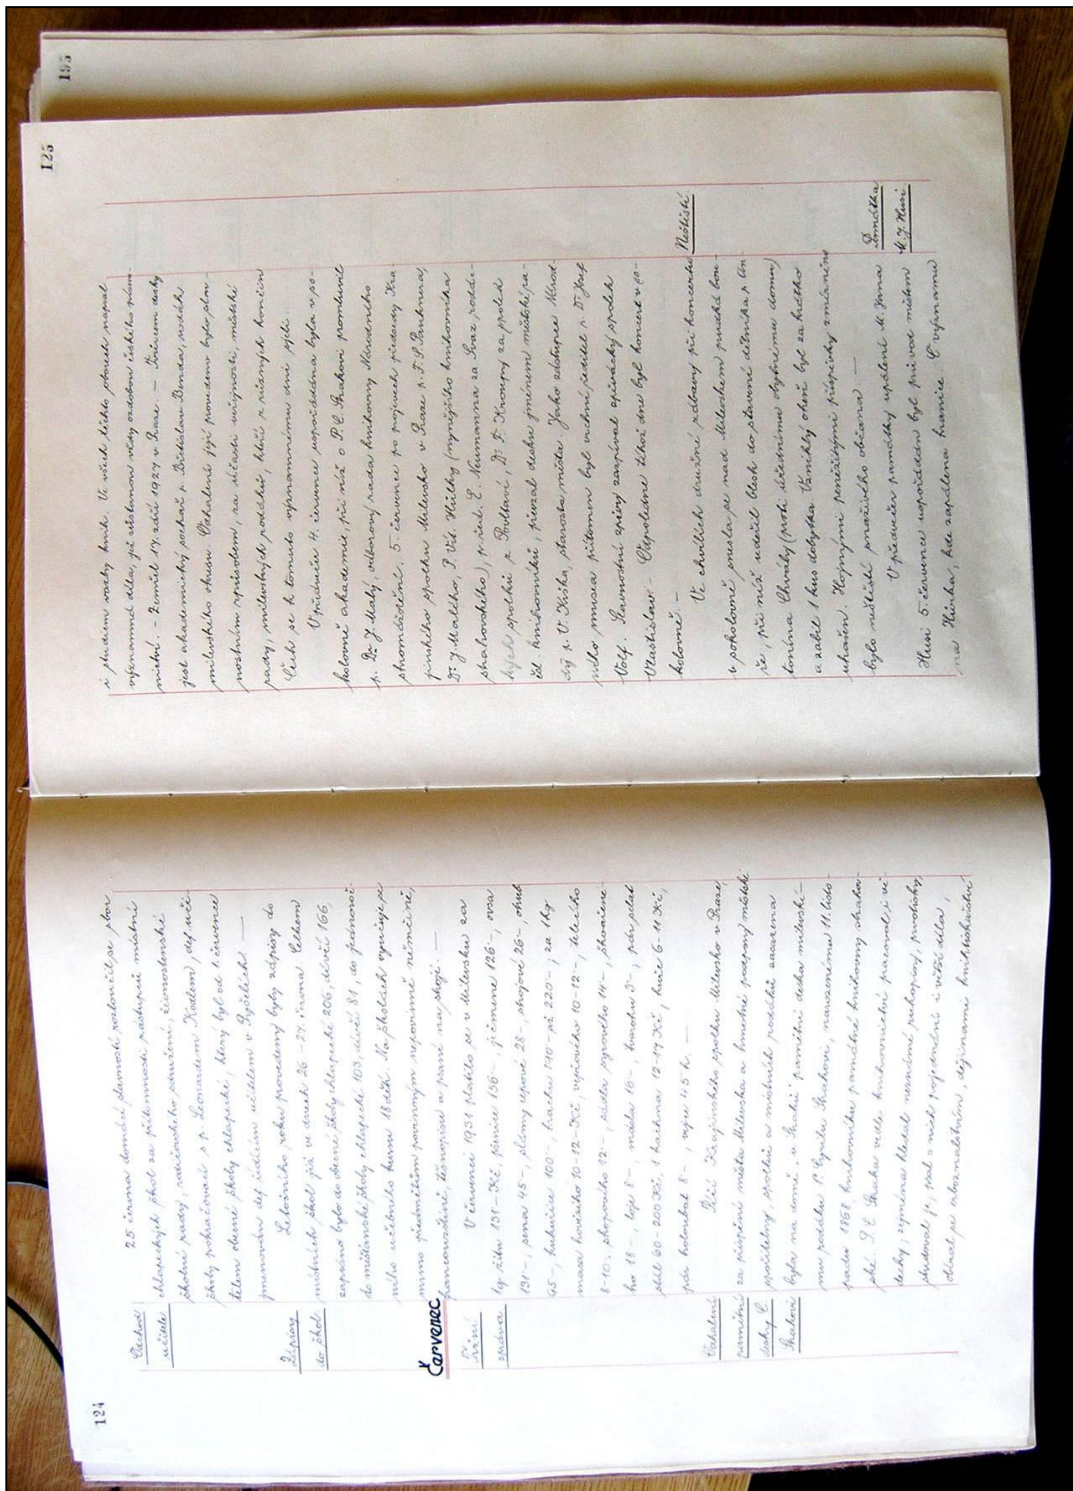 124
Odchod
učitele
25. června domácí slavností rozloučil se sbor
chlapeckých škol za přítomnosti zástupců místní
školní rady, rodičovského sdružení, živnostenské
školy pokračovací s p. Leonardem Kodlem, def. uči-
telem obecné školy chlapecké, který byl od 1. července
jmenován def. řídícím učitelem v
Zápisy
do škol
Letošního roku provedeny byly zápisy do
místních škol již ve dnech 26.-27. června. Celkem
zapsáno bylo do obecné školy chlapecké 206, dívčí 166,
do měšťanské školy chlapecké 103, dívčí 81, do jednoroč-
ního učebného kursu 18 dětí. Na školách vyučuje se
mimo předmětům povinným nepovinně němčině,
těsnopisu a psaní na stroji. —
Červenec
Tržní
zpráva
V červenci 1931 platilo se v Milevsku za
1q žita 131- Kč, pšenice 156-, ječmene 126-, ovsa
131-, sena 45-, slámy cepové 28-, strojové 26-, otrub
65-, kukuřice 100-, hrachu 140- až 220-, za 1kg
masa hovězího 10-12 Kč, vepřového 10-12-, telecího
8-10-, skopového 12-, sádla syrového 14-, škvařené-
ho 18-, loje 8-, másla 16-, tvarohu 3-, pár
60-200 Kč, 1 kachna 12-19 Kč, husie 6-11 Kč,
pár holoubat 8-, vejce 45 h. —
Odhalení
pamětní
desky C.
Strahovi
Péčí Krajinského spolku Milevsko v Praze,
za přispění města Milevska a hmotné podpory městské
spořitelny, spolků a místních rodáků zasazena
byla na domě „u Strahů" pamětní deska milevské-
mu rodáku P. Cyrilu Strahovi, narozenému 11. listo-
padu 1868 knihovníku památné knihovny strahov-
ské. P. C. Straka vedle knihovnictví pracoval i vě-
decky, zejména hledal vzácné rukopisy, prvotisky,
studoval je, psal o nich pojednání i větší díla,
obíral se obzvláštním dějinami knihtiskařství
125
i psaním vazby knih. Ve všech těchto oborech napsal
významná díla, jež zůstanou vždy ozdobou českého písem-
nictví. - Zemřel 19. září 1927 v Praze. — Tvůrcem desky
jest akademický sochař p. Břetislav Benda, rodák
milevského okresu. Odhalení její provedeno bylo slav-
nostním způsobem, za účasti veřejnosti, městské
rady, milevských rodáků, kteří z různých končin
Čech se k tomuto významnému dni sjeli.
V předvečer 4. července uspořádána byla v so-
kolovně akademie, při níž o P. C. Strakovi promluvil
p. Dr. J. Malý, odborový rada knihovny Národního
shromáždění. 5. července po projevech předsedy Kra-
jinského spolku Milevsko v Praze p. F. S. Panknera,
Dr. J. Malého, P. Vít. Hůlky (nynějšího knihovníka
strahovského), p. řed. L. Neumanna za Svaz rodá-
kých spolků z Povltaví, Dr. F. Kroupy za spolek
čsl. knihovníků, převzal desku jménem městské ra-
dy p. V. Kůka, starosta města. Jako zástupce Národ-
ního musea přítomen byl vrchní ředitel p. Dr. Josef
Volf. Slavnostní zpěvy zazpíval zpěvácký spolek
Vlastislav. - Odpoledne téhož dne byl koncert v so-
kolovně. —
Neštěstí
Ve chvílích družné zábavy při koncertu
v sokolovně snesla se nad Milevskem prudká bou-
ře, při níž udeřil blesk do stavení dělníka p. An-
tonína Chvály (proti úřednímu obytnému domu)
a zabil 1 kus dobytka. Vzniklý oheň byl za krátko
uhašen. Hojnými peněžitými příspěvky zmírněno
bylo neštěstí snaživého občana. —
Památka
M. J. Husi
V předvečer památky upálení M. Jana
Husi 5. července uspořádán byl průvod městem
na Hůrka, kde zapálena hranice. O významu
195